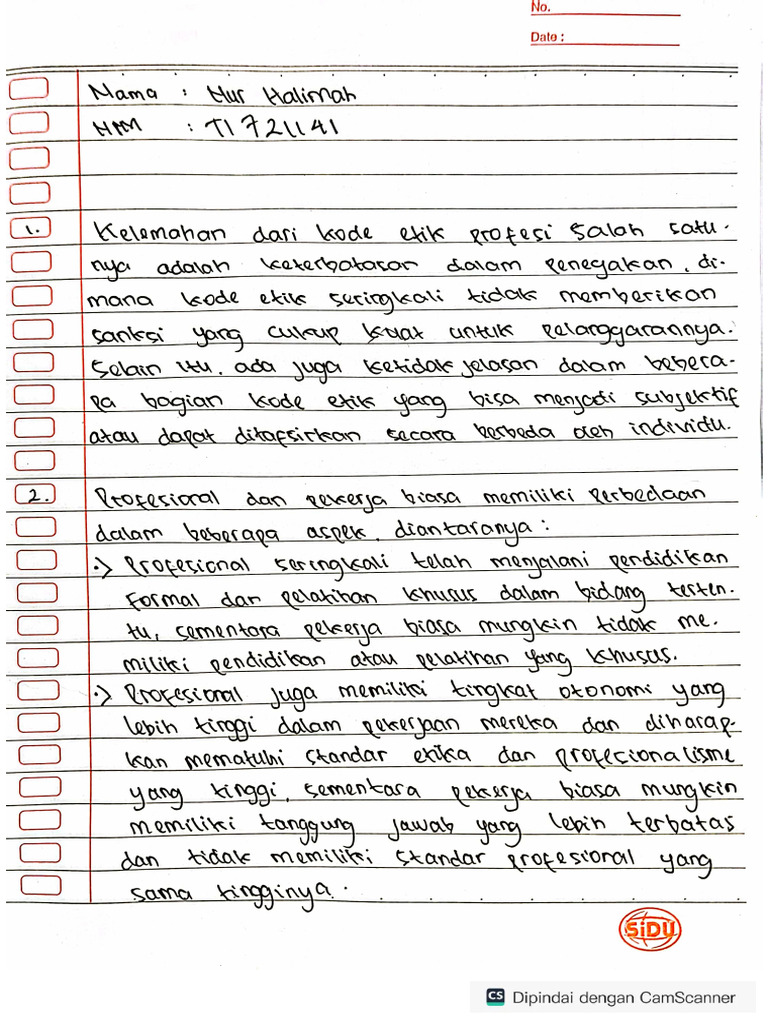 No.
Date :
Nama : Nur Halimah
NIM : T1721141
1. Kelemahan dari kode etik profesi salah satu-
nya adalah keterbatasan dalam penegakan, di-
mana kode etik seringkali tidak memberikan
sanksi yang cukup kuat untuk pelanggarannya.
Selain itu, ada juga ketidak jelasan dalam bebera-
pa bagian kode etik yang bisa menjadi subjektif
atau dapat ditafsirkan secara berbeda oleh individu.
2. Profesional dan pekerja biasa memiliki perbedaan
dalam beberapa aspek, diantaranya :
·> Profesional seringkali telah menjalani pendidikan
formal dan pelatihan khusus dalam bidang terten-
tu, sementara pekerja biasa mungkin tidak me-
miliki pendidikan atau pelatihan yang khusus.
·> Profesional juga memiliki tingkat otonomi yang
lebih tinggi dalam pekerjaan mereka dan diharap-
kan mematuhi standar etika dan profesionalisme
yang tinggi, sementara pekerja biasa mungkin
memiliki tanggung jawab yang lebih terbatas
dan tidak memiliki standar profesional yang
sama tingginya.
SiDU
CS Dipindai dengan CamScanner